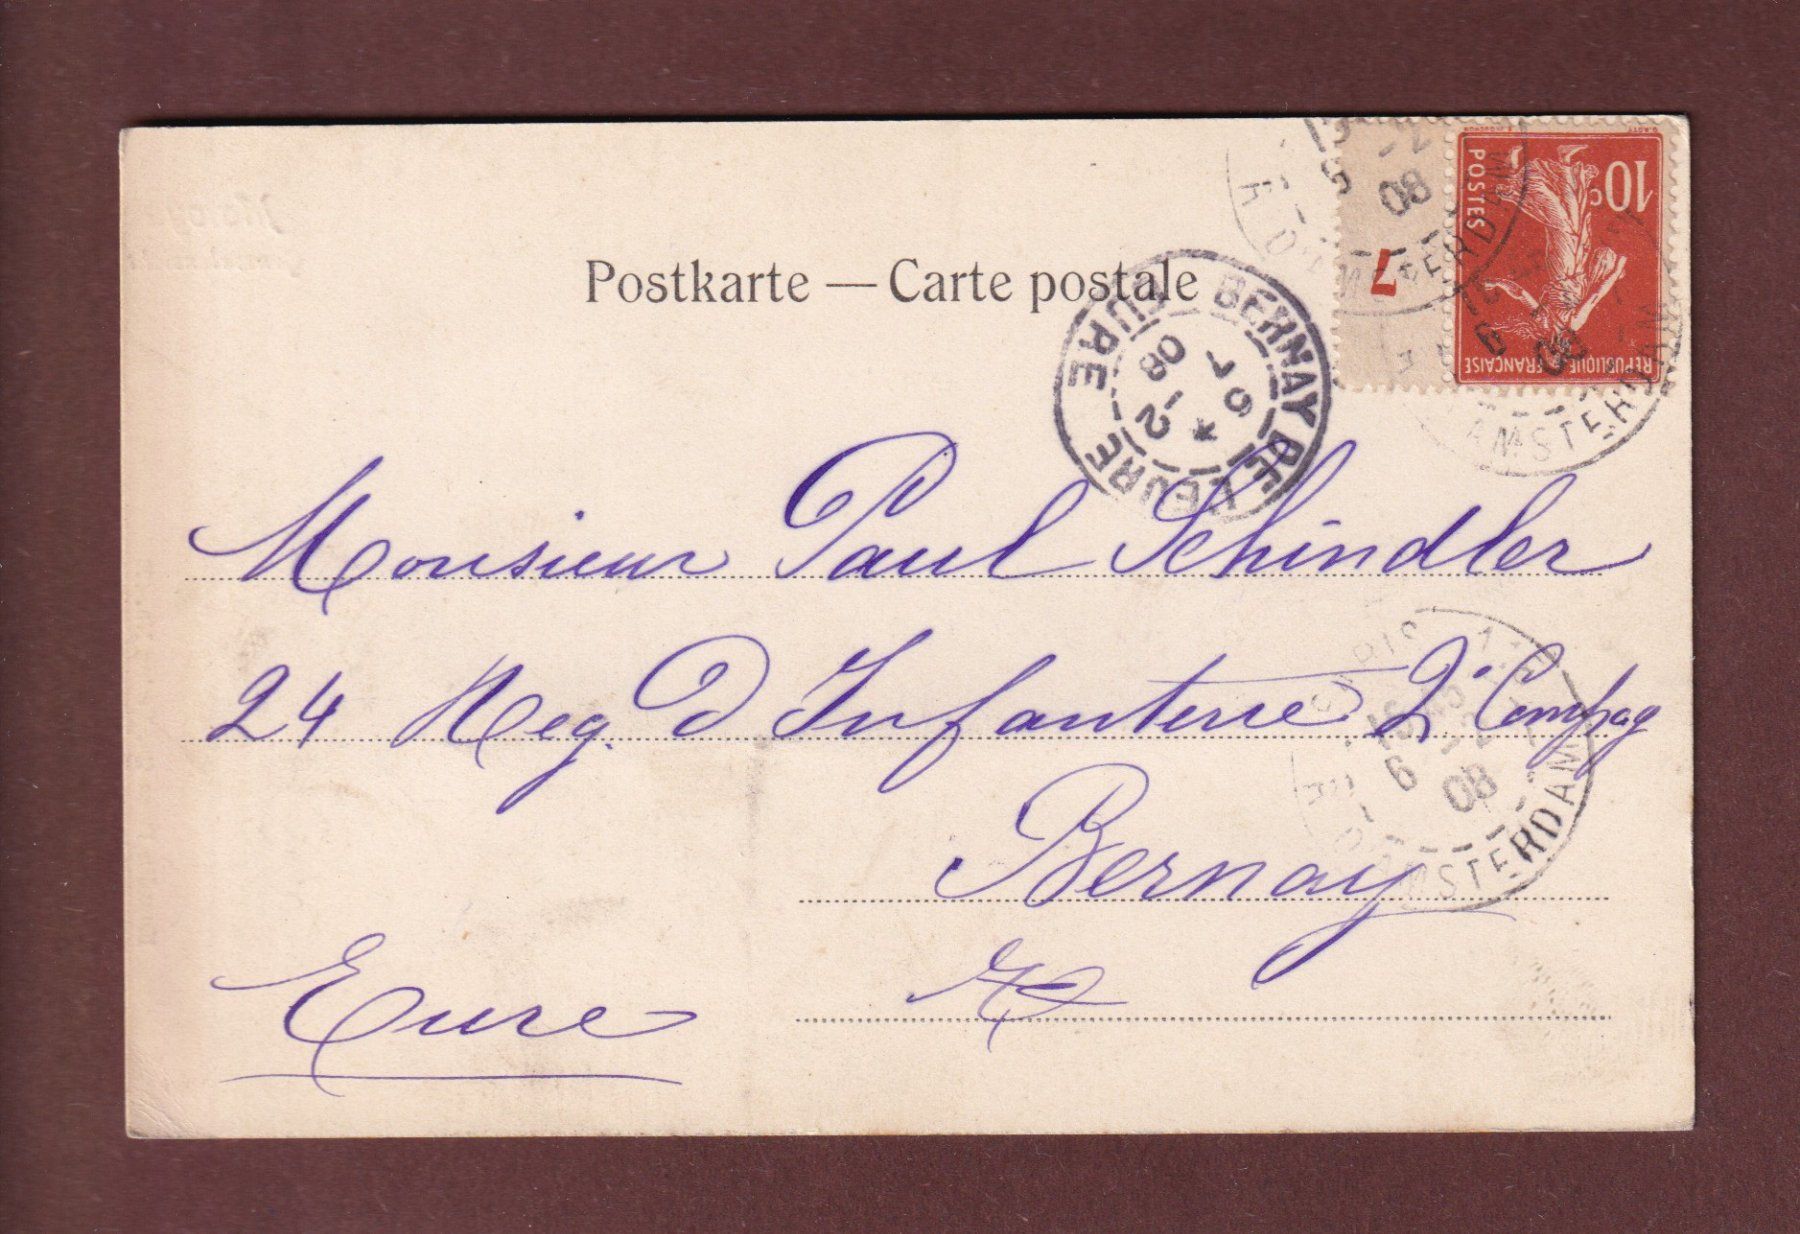 Postkarte — Carte postale
10c
POSTES
REPUBLIQUE FRANÇAISE
7
BERNAY DE L'EURE
EURE
7
6 -2
08
AMSTERDAM
08
AMSTERDAM
6
08
Monsieur Paul Schindler
24 Reg. d'Infanterie 2e Compag
PARIS
6
08
R. D'AMSTERDAM
Bernay
Eure